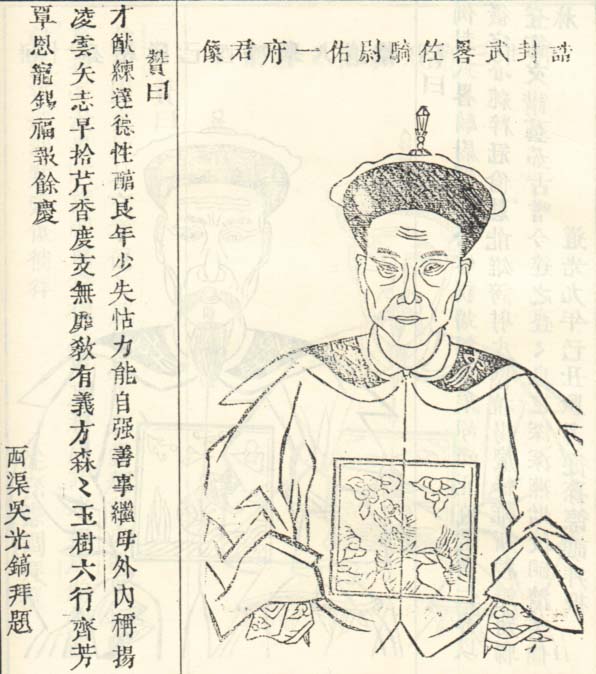 誥封武畧佐騎尉佑一府君像
贊曰
才猷練達德性醇良年少失怙力能自强善事繼母外內稱揚
凌雲矢志早拾芹香慶支無靡敎有義方森〻玉樹六行齊芳
覃恩寵錫福報餘慶
西渠吳光鎬拜題